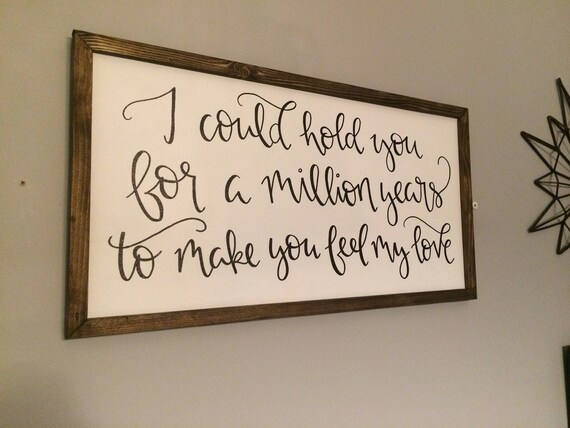 I could hold you
for a million years
to make you feel my love